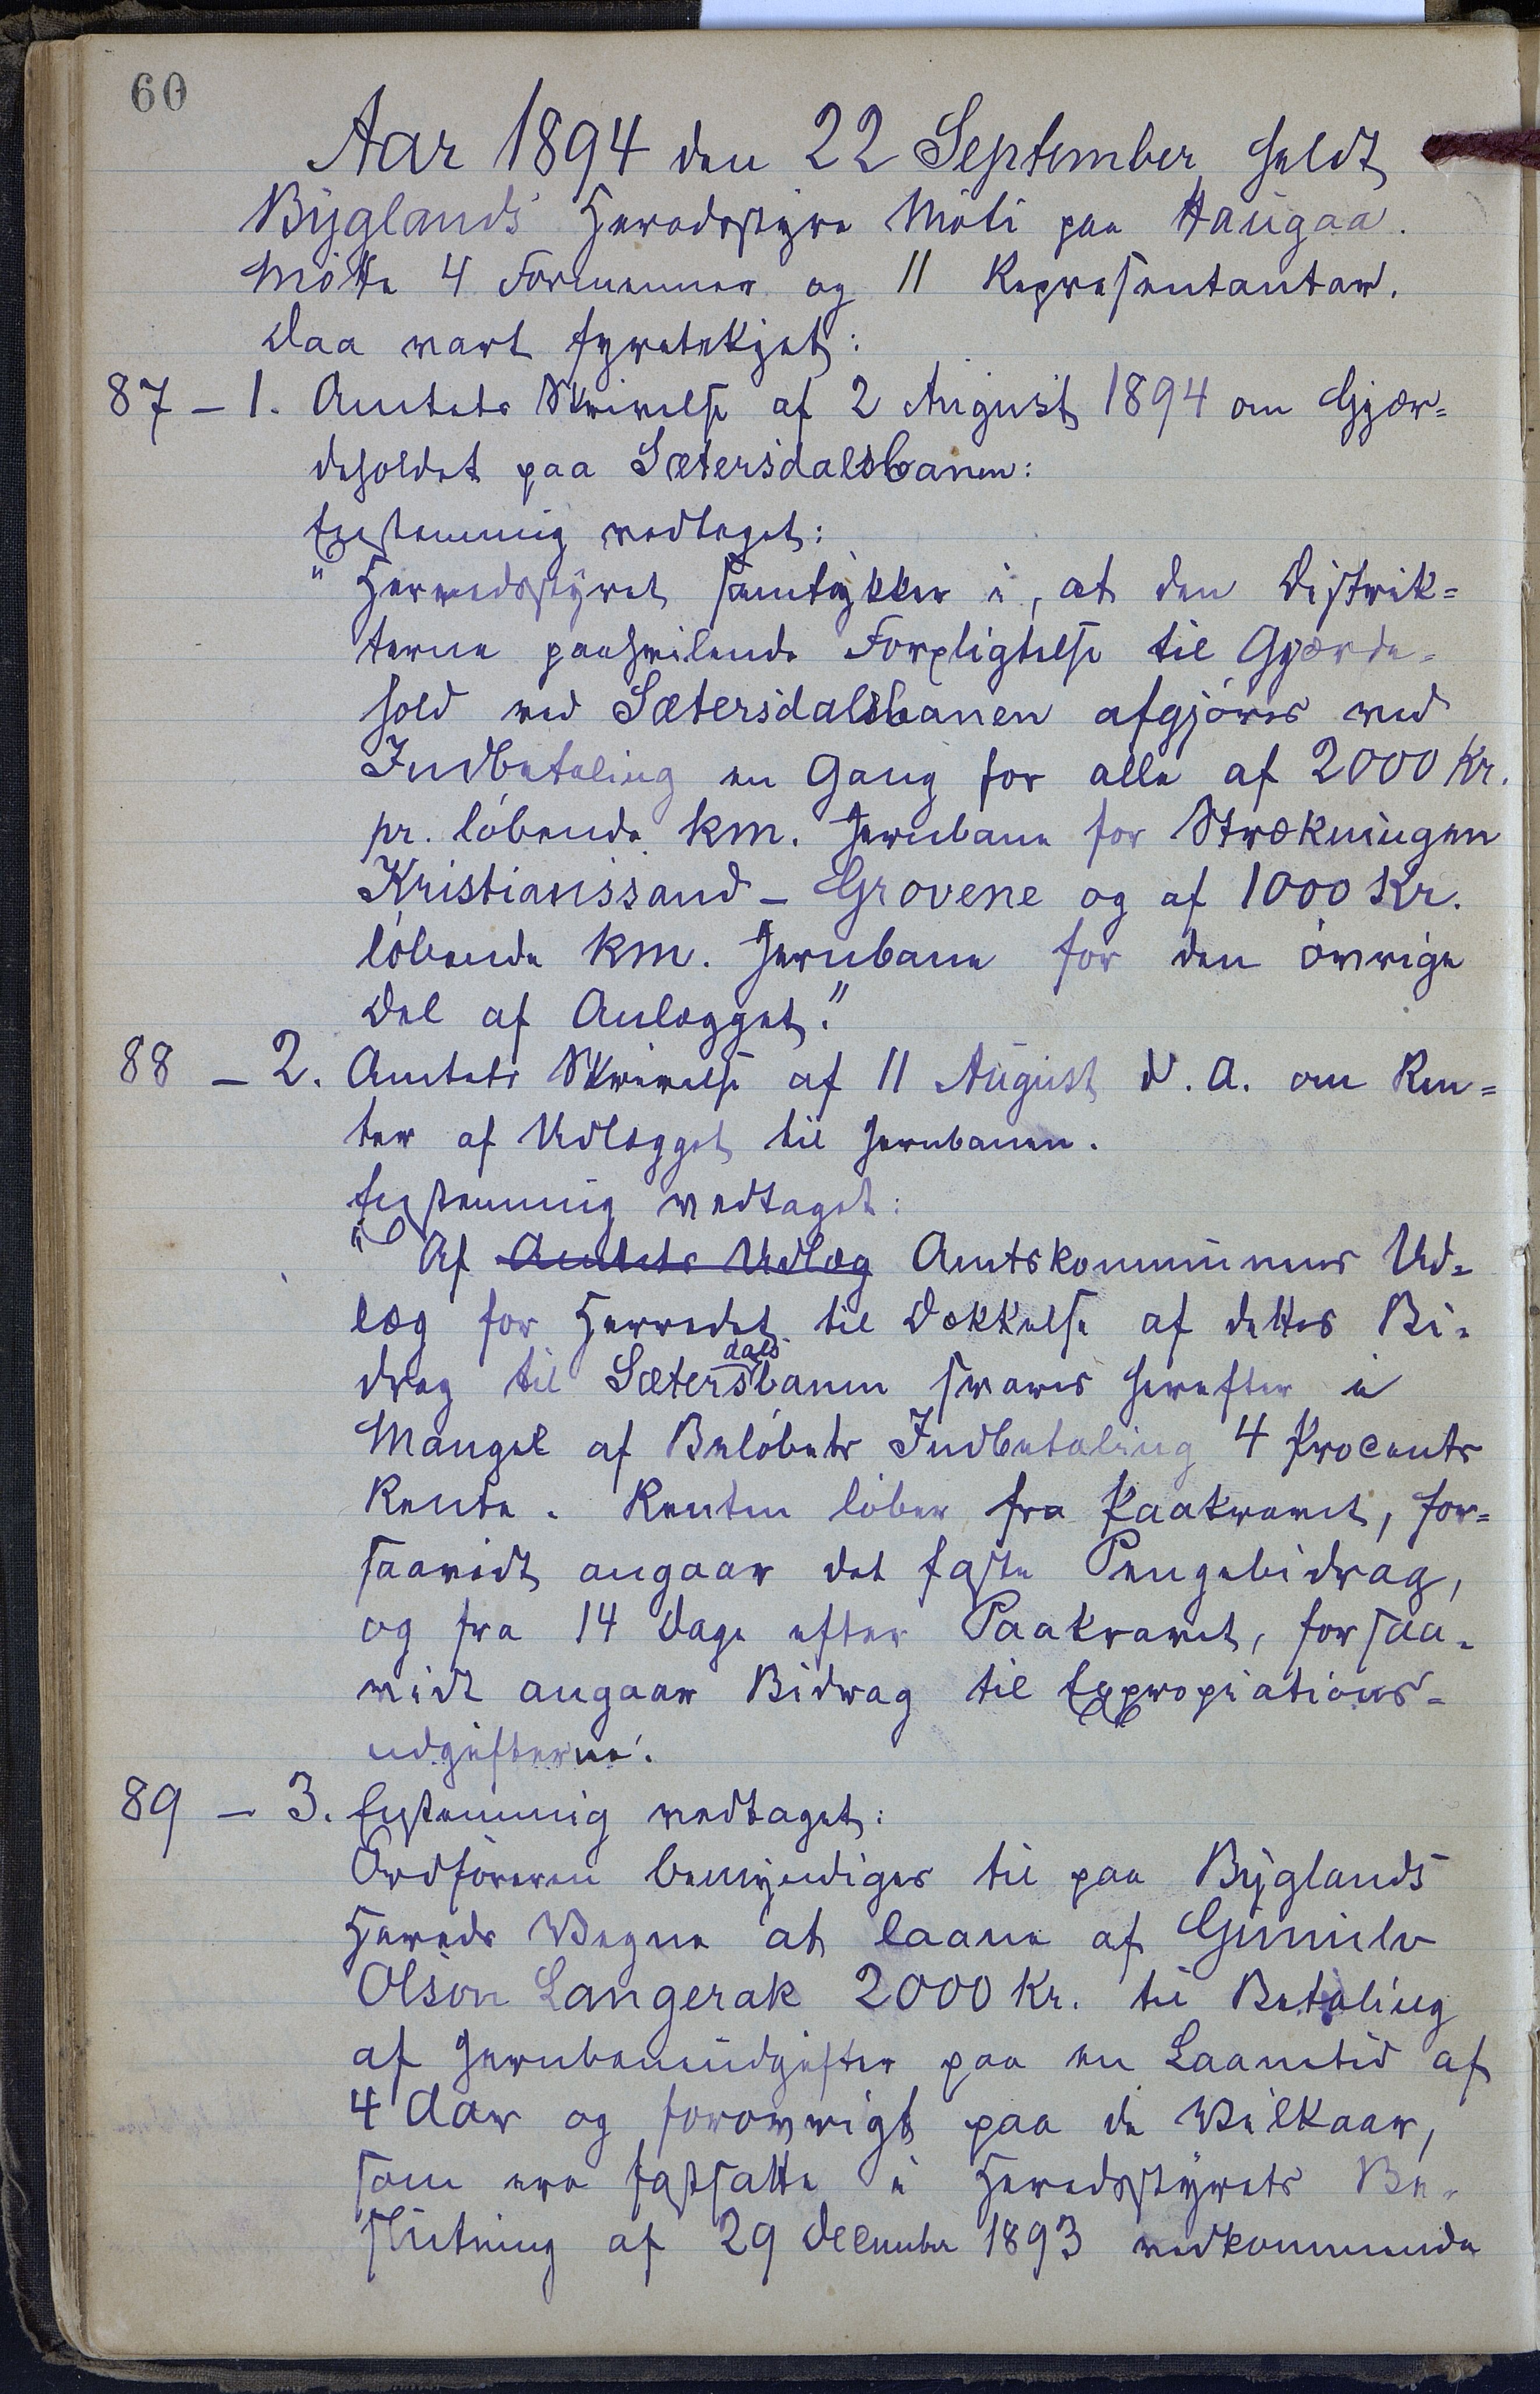 60
Aar 1894 den 22 September heldt
Byglands Heradsstyre Möti paa Haugaa.
Mötte 4 Formenner og 11 Representantar.
Daa vart fyretekjet:
87 – 1. Amtets Skrivelse af 2 August 1894 om Gjær=
deholdet paa Sætersdalsbanen:
Enstemmig vedtaget:
"Herredsstyret samtykker i, at den Distrik=
terne paahvilende Forpligtelse til Gjærde=
hold ved Sætersdalsbanen afgjöres ved
Indbetaling en Gang for alle af 2000 Kr.
pr. löbende km. Jernbane for Strækningen
Kristianssand – Grovene og af 1000 Kr.
löbende km. Jernbane for den övrige
Del af Anlægget."
88 – 2. Amtets Skrivelse af 11 August d. A. om Ren=
ter af Udlægget til Jernbanen.
Enstemmig vedtaget:
"Af Amtets Udlæg Amtskommunens Ud=
læg for Herredet til Dækkelse af dettes Bi=
drag til Sætersdalsbanen svares herefter i
Mangel af Belöbets Indbetaling 4 Procents
Rente. Renten löber fra Paakravet, for=
saavidt angaar det faste Pengebidrag,
og fra 14 Dage efter Paakravet, forsaa=
vidt angaar Bidrag til Expropriations=
udgifterne".
89 – 3. Enstemmig vedtaget:
Ordföreren bemyndiges til paa Byglands
Herads Vegne at laane af Gunnulv
Olson Langerak 2000 Kr. til Betaling
af Jernbaneudgifter paa en Laanetid af
4 Aar og forövrigt paa de Vilkaar,
som ere fastsatte i Heradsstyrets Be=
slutning af 29 December 1893 vedkommende